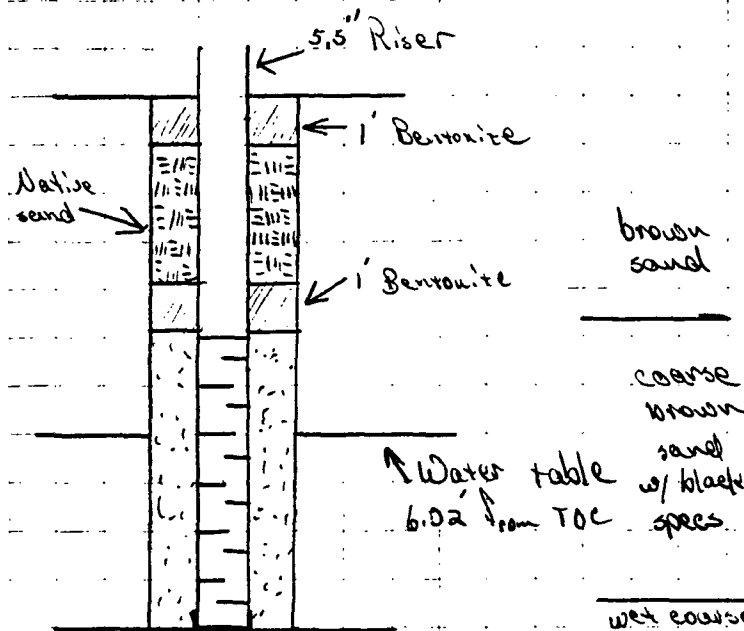 5.5" Riser
1' Bentonite
Native
sand
1' Bentonite
brown
sand
coarse
brown
sand
w/ black
specs
Water table
6.02' from TOC
wet coarse